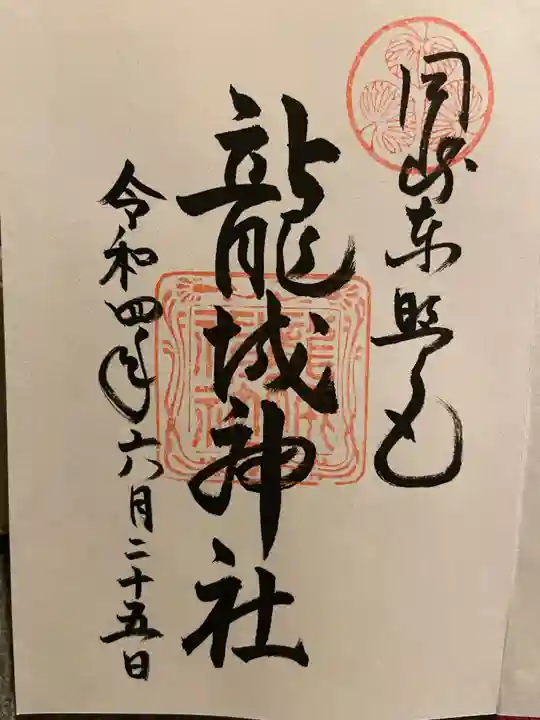 岡崎東照宮
龍城神社
令和四年六月二十五日